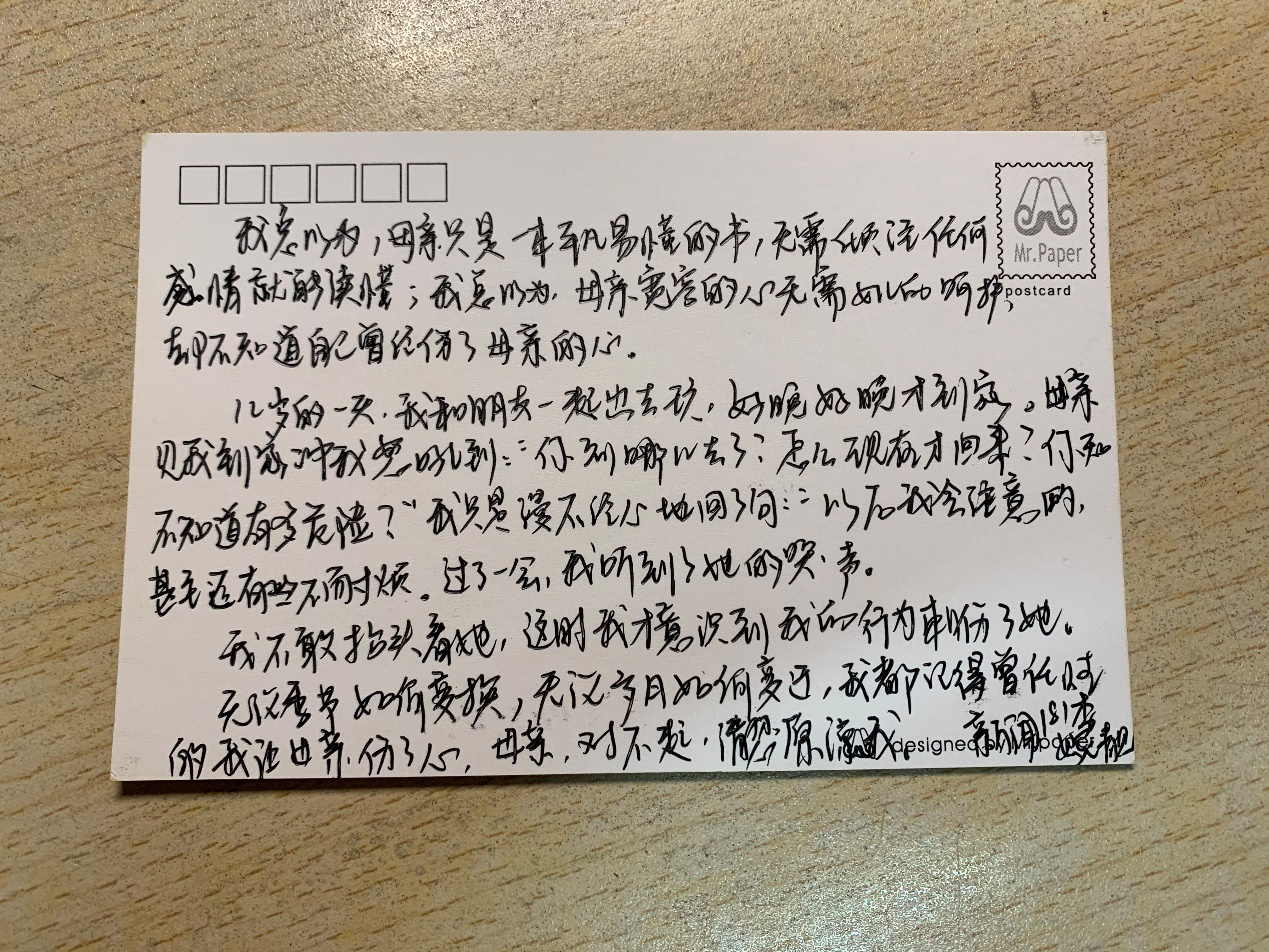 我总以为，母亲只是一本平凡易懂的书，无需倾注任何
感情就能读懂；我总以为，母亲宽容的心无需如心的呵护，
却不知道自己曾经伤了母亲的心。
12岁的一天，我和朋友一起出去玩，好晚好晚才到家。母亲
见我到家冲我怒吼到：“你到哪儿去了？怎么现在才回来？你知
不知道有多危险？”我只是漫不经心地回了句：“以后我会注意的，
甚至还有些不耐烦。过了一会，我听到了她的哭声。
我不敢抬头看她，这时我才意识到我的行为刺伤了她。
无论季节如何变换，无论岁月如何变迁，我都记得曾任时
的我让母亲伤了心，母亲，对不起，请您原谅我。
新闻181李
Mr.Paper
postcard
designed by